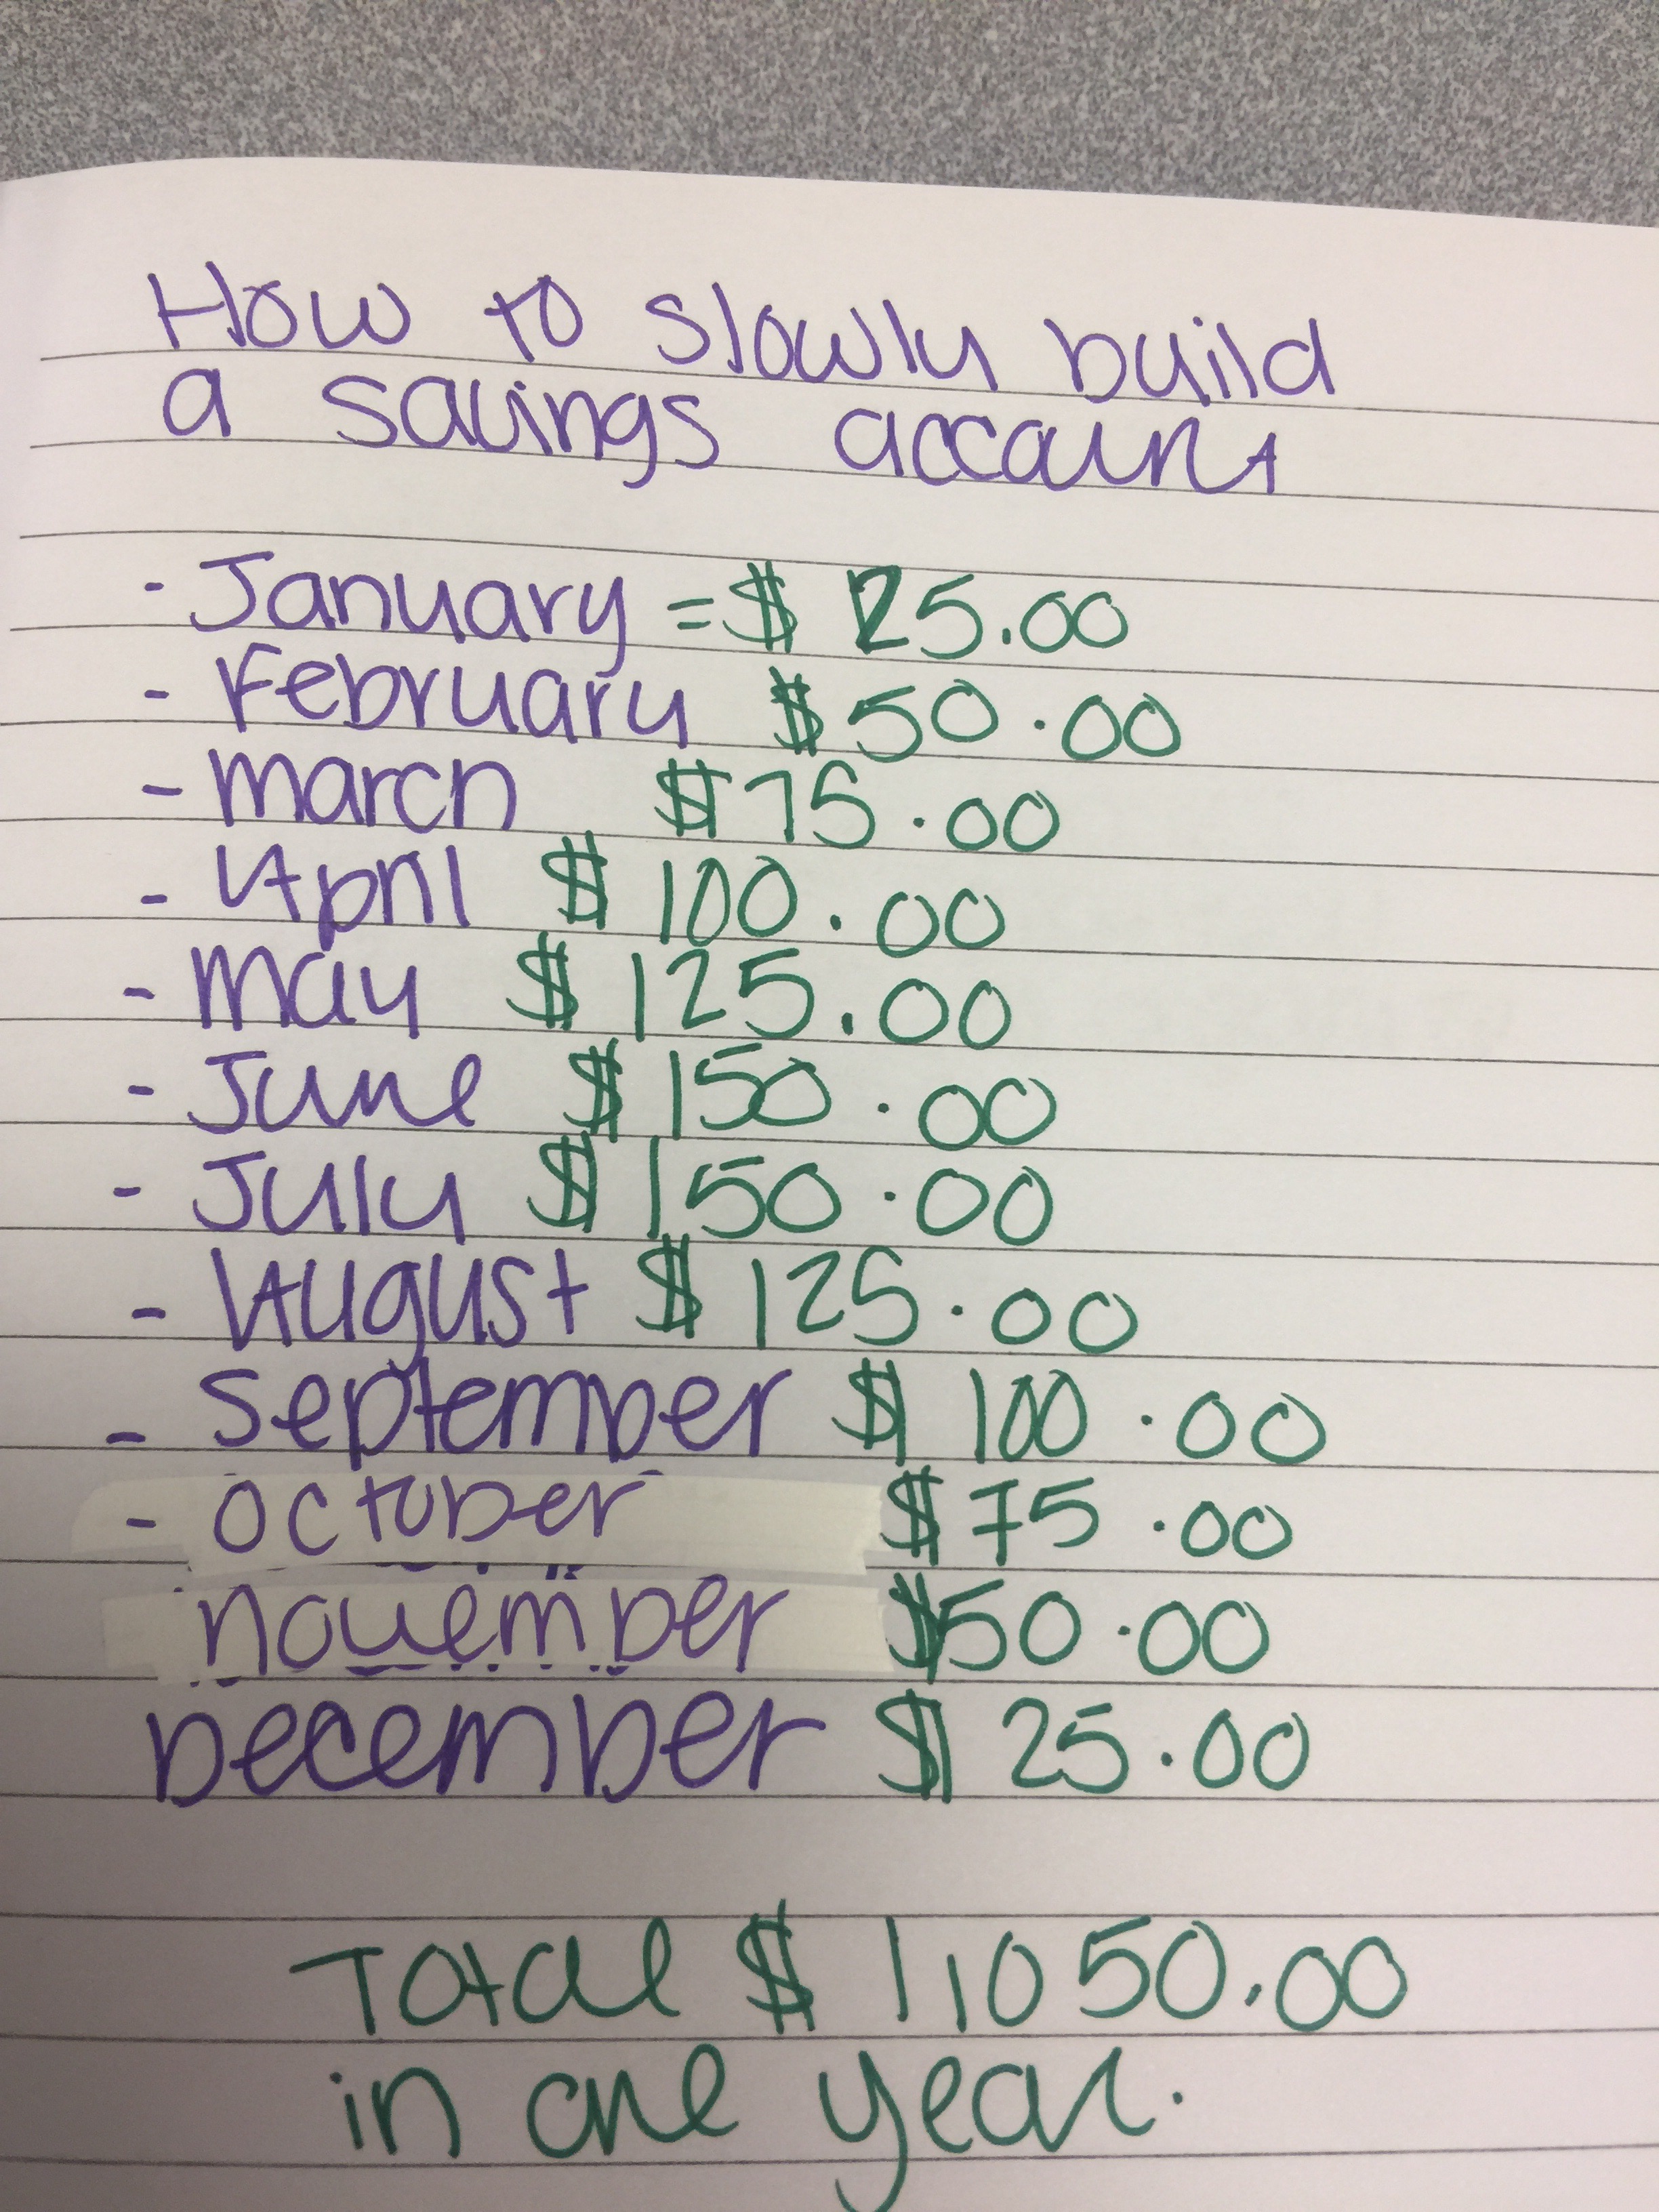 How to slowly build
a savings account
- January = $ 25.00
- February $ 50.00
- march $ 75.00
- April $ 100.00
- may $ 125.00
- June $ 150.00
- July $ 150.00
- August $ 125.00
- September $ 100.00
- october $ 75.00
november $50.00
December $ 25.00
Total $ 1,050.00
in one year.